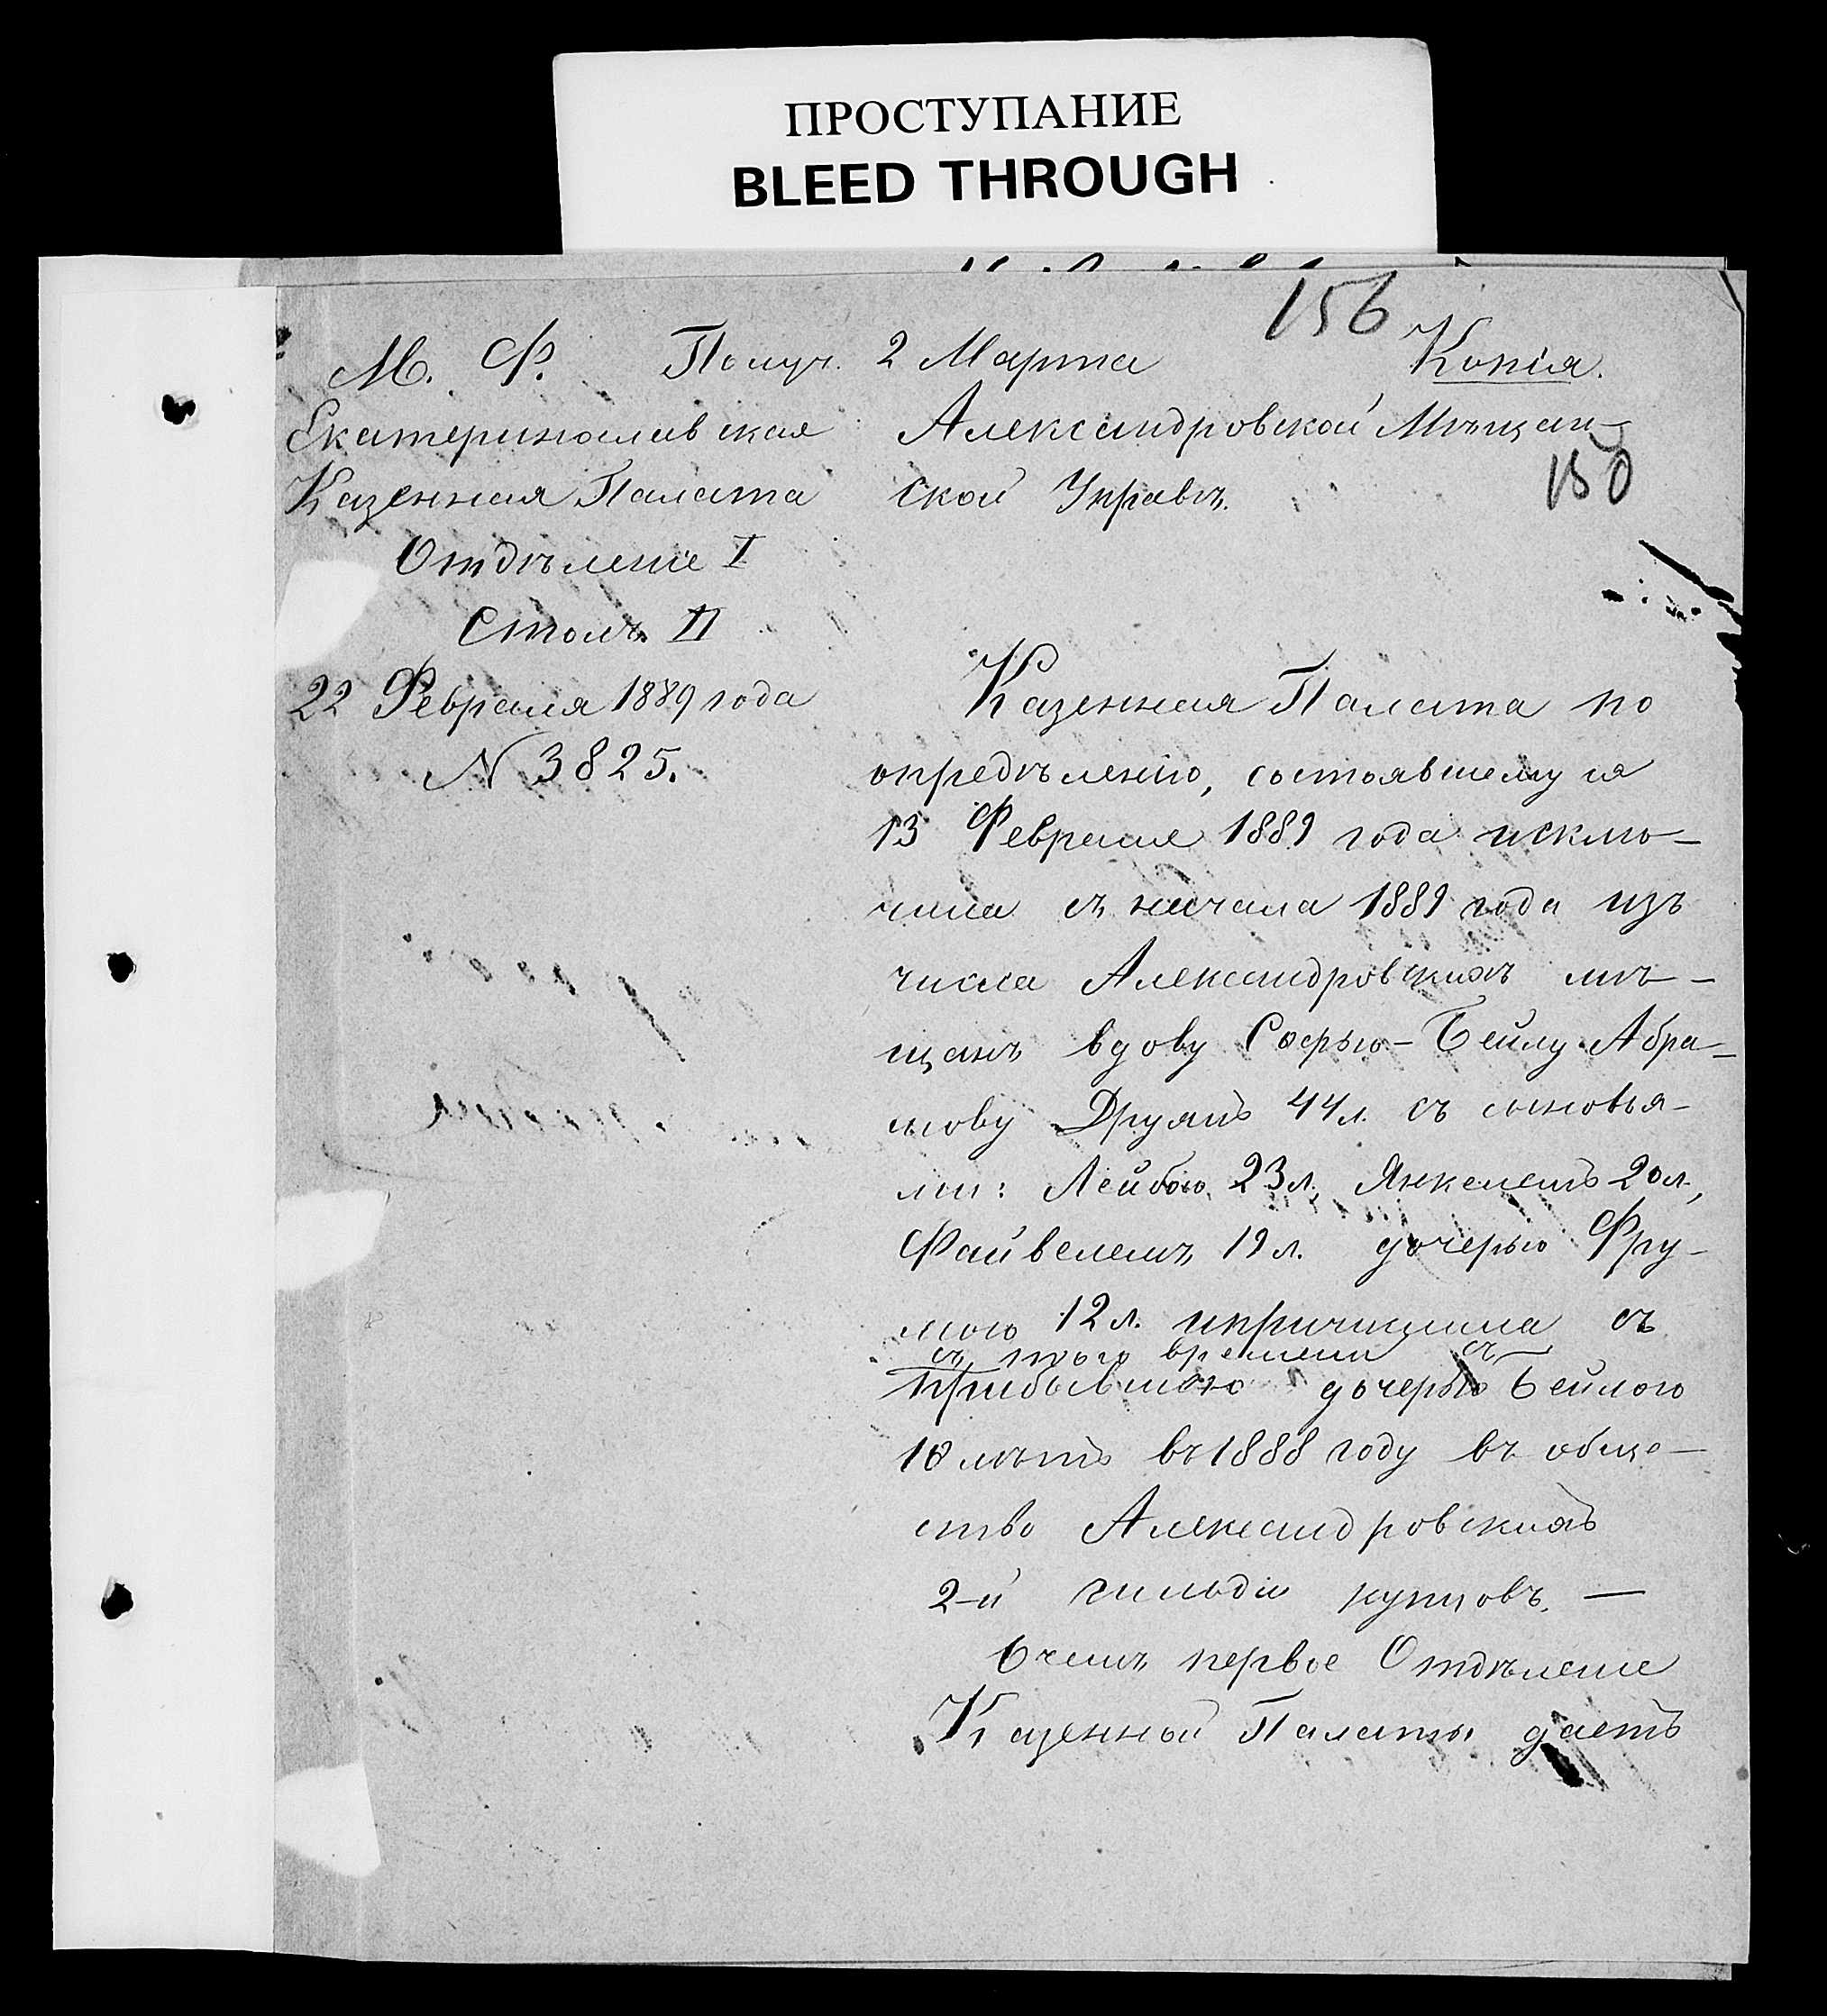 ПРОСТУПАНИЕ
BLEED THROUGH
156
М. Ф. Получ. 2 Марта
Копія.
Екатеринославская
Казенная Палата
Отдѣленіе I
Столъ II
22 Февраля 1889 года
N 3825.
Александровской Мѣщан-
ской Управѣ.
150
Казенная Палата по
опредѣленію, состоявшемуся
13 Февраля 1889 года исклю-
чила съ начала 1889 года изъ
числа Александровскихъ мѣ-
щанъ вдову Софью-Бейлу Абра-
мову Друянъ 44 л. съ сыновья-
ми: Лейбою 23 л, Янкелемъ 20 л,
Файвелемъ 19 л. дочерью Фру-
мою 12 л. и причислила съ
съ того времени съ
прибывшею дочерью Бейлою
10 лѣтъ въ 1888 году въ обще-
ство Александровскихъ
2-й гильдіи купцовъ. —
О чемъ первое Отдѣленіе
Казенной Палаты даетъ